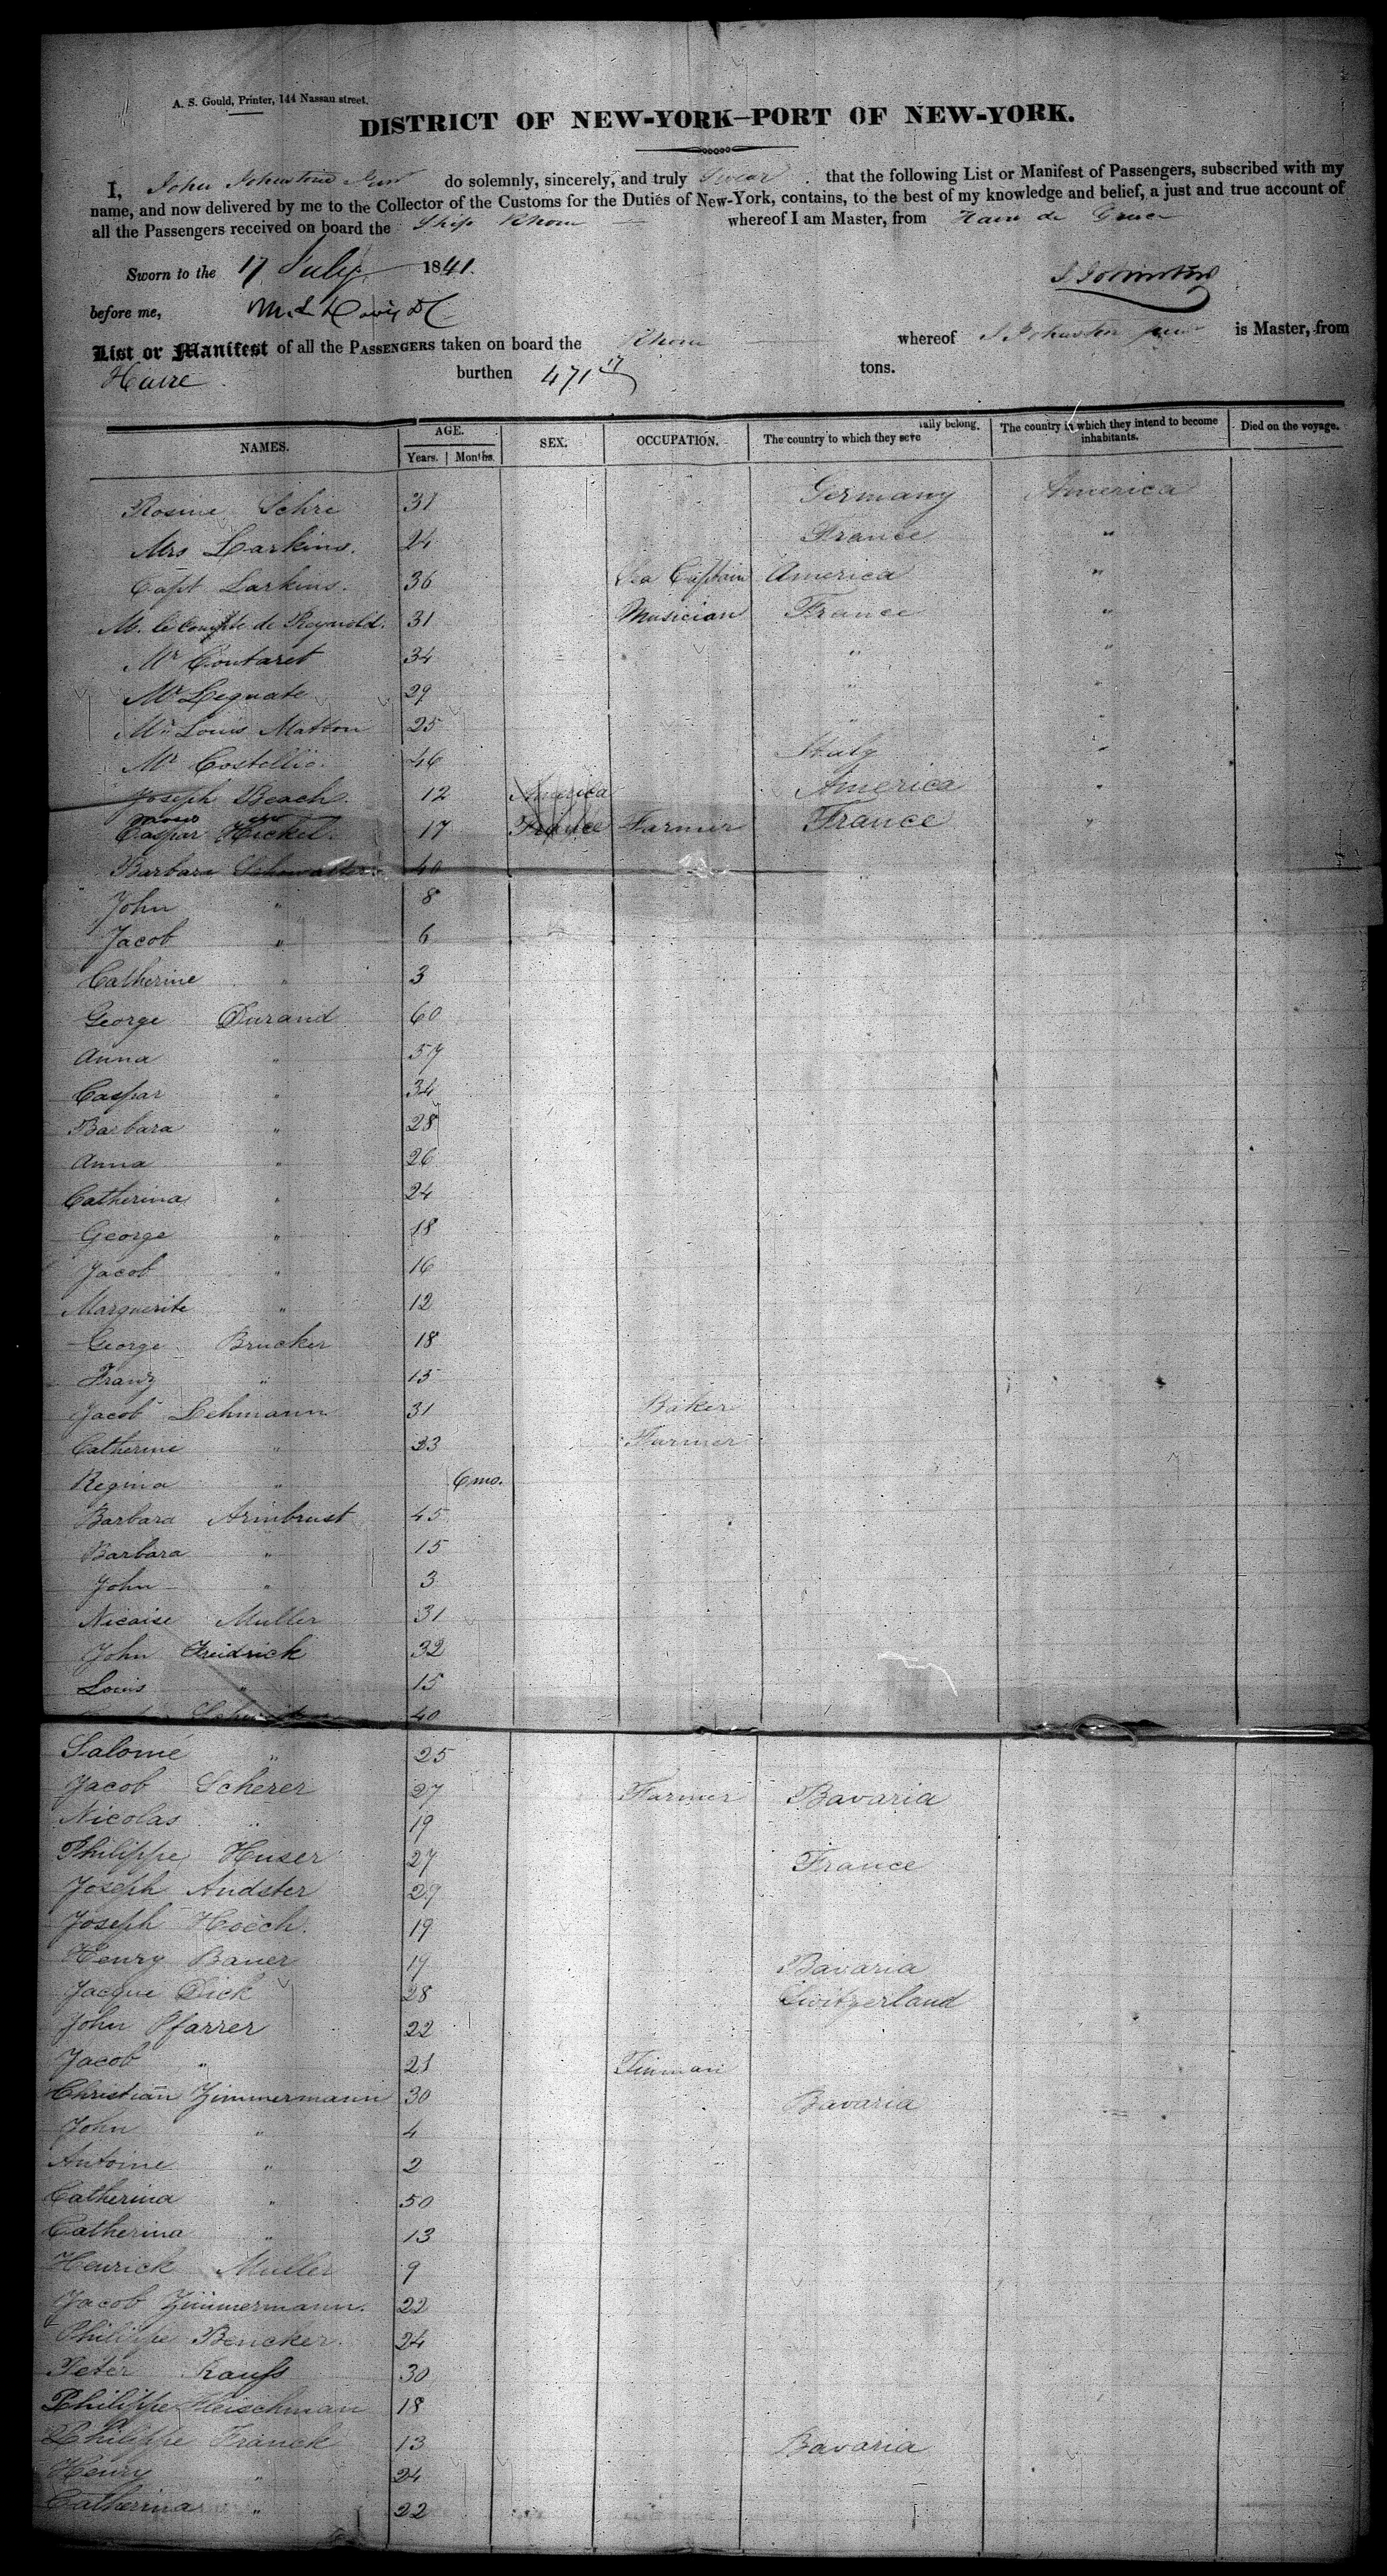 A. S. Gould, Printer, 144 Nassau street.
DISTRICT OF NEW-YORK—PORT OF NEW-YORK.
I, John Johnston Junr do solemnly, sincerely, and truly swear that the following List or Manifest of Passengers, subscribed with my
name, and now delivered by me to the Collector of the Customs for the Duties of New-York, contains, to the best of my knowledge and belief, a just and true account of
all the Passengers received on board the Ship Rhone whereof I am Master, from Havre de Grace
Sworn to the 17 July 1841. J Johnston
before me,
List or Manifest of all the PASSENGERS taken on board the Rhone whereof J Johnston junr is Master, from
Havre burthen 471 17 tons.
NAMES. AGE. SEX. OCCUPATION. The country to which they severally belong. The country in which they intend to become inhabitants. Died on the voyage.
Years. Months.
Rosine Schre 31 Germany America
Mrs Larkins. 24 France "
Capt Larkins. 36 Sea Captain America "
M. le Compte de Reynold. 31 Musician France "
Mr Contaret 34 " "
Mr Legnate 29 " "
Mr Louis Matton 25 " "
Mr Costellio. 46 Italy "
Joseph Beach. 12 America America "
Caspar Hickel. 17 France Farmer France "
Barbara Schowalter 40
John " 8
Jacob " 6
Catherine " 3
George Durand 60
Anna " 57
Caspar " 34
Barbara " 28
Anna " 26
Catherina " 24
George " 18
Jacob " 16
Marguerite " 12
George Brucker 18
Franz " 15
Jacob Lehmann 31 Baker
Catherine " 23 Farmer
Regina " 6 mo.
Barbara Armbrust 45
Barbara " 15
John " 3
Nicaise Muller 31
John Freidrick 32
Louis " 15
40
Salomé " 25
Jacob Scherer 27 Farmer Bavaria
Nicolas " 19
Philippe Huser 27 France
Joseph Andster 29
Joseph Hoëch. 19
Henry Bauer 19 Bavaria
Jacque Dick 28 Switzerland
John Pfarrer 22
Jacob " 21 Tinman
Christian Zimmermann 30 Bavaria
John " 4
Antoine " 2
Catherina " 50
Catherina " 13
Henrick Muller 9
Jacob Zimmermann. 22
Philippe Bencker. 24
Peter Raufs 30
Philippe Fleischman 18
Philippe Franck 13 Bavaria
Henry " 24
Catherina " 22